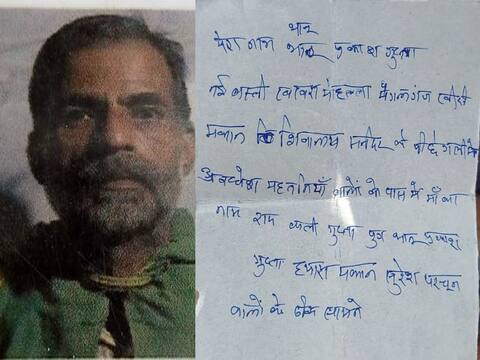 भानु
मेरा नाम भानु प्रकाश गुप्ता
नई बस्ती मोहल्ला मंगलगंज
मकान शिवालय मन्दिर के पीछे गली में
अवधेश वालों के पास में माँ का
नाम राम कली गुप्ता पुत्र भानु प्रकाश
गुप्ता हमारा मकान सुरेश परचून
वालों के ठीक सामने